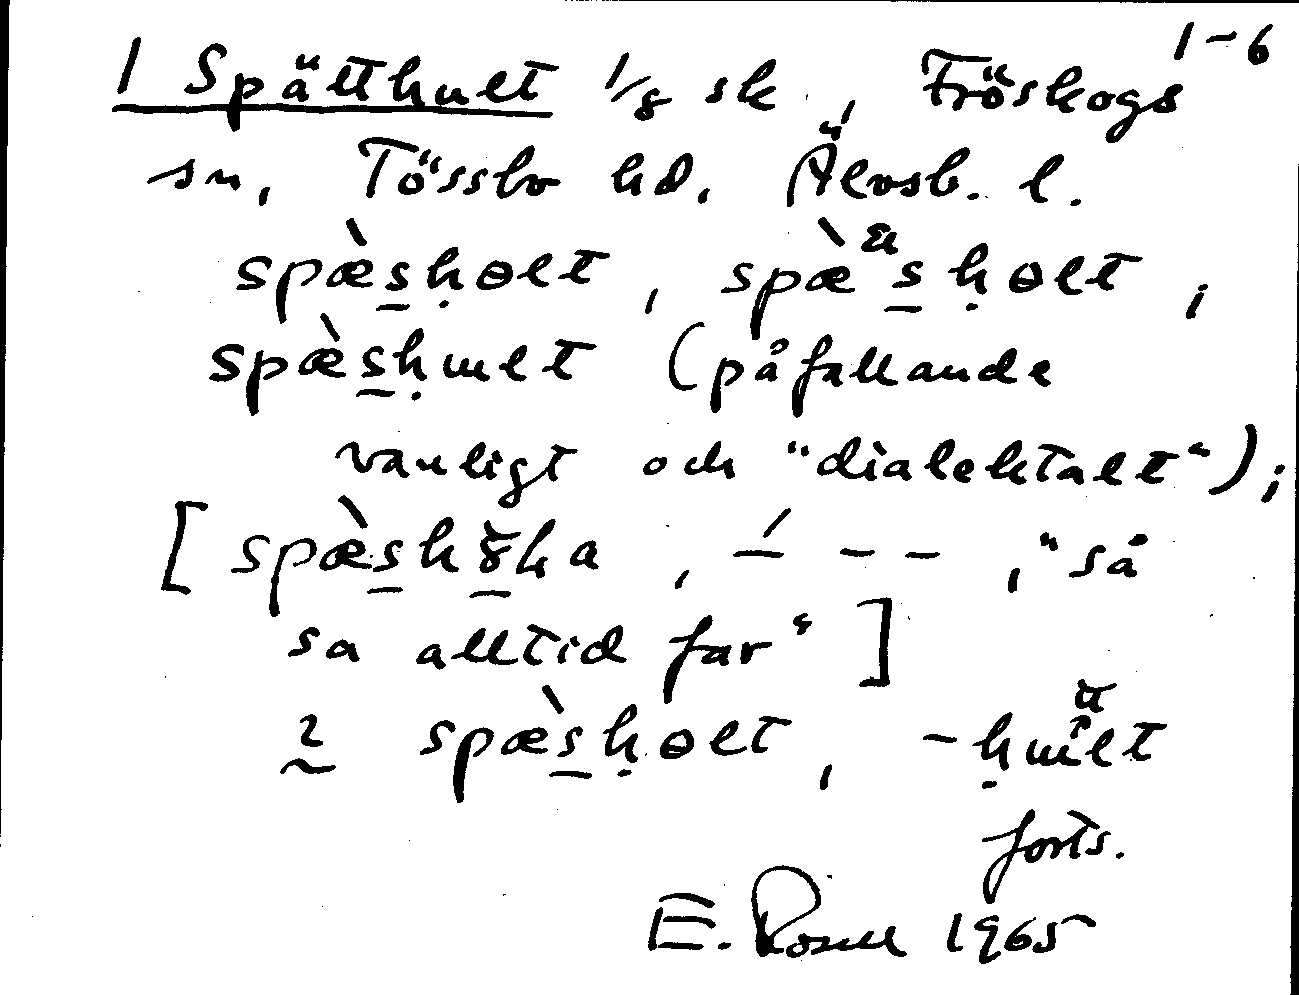 1-6
1 Spätthult 1/8 sk., Fröskogs
sn, Tössbo hd. Älvsb. l.
spæ̀s̱ḥɵlt, spæ̀s̱ḥɵlt;
spæ̀s̱ḥult (påfallande
vanligt och "dialektalt");
[spæ̀s̱hö̱ka, –́ – –, "så
sa alltid far"]
2 spæ̀s̱ḥɵlt, -ḥult
forts.
E. Rosell 1965